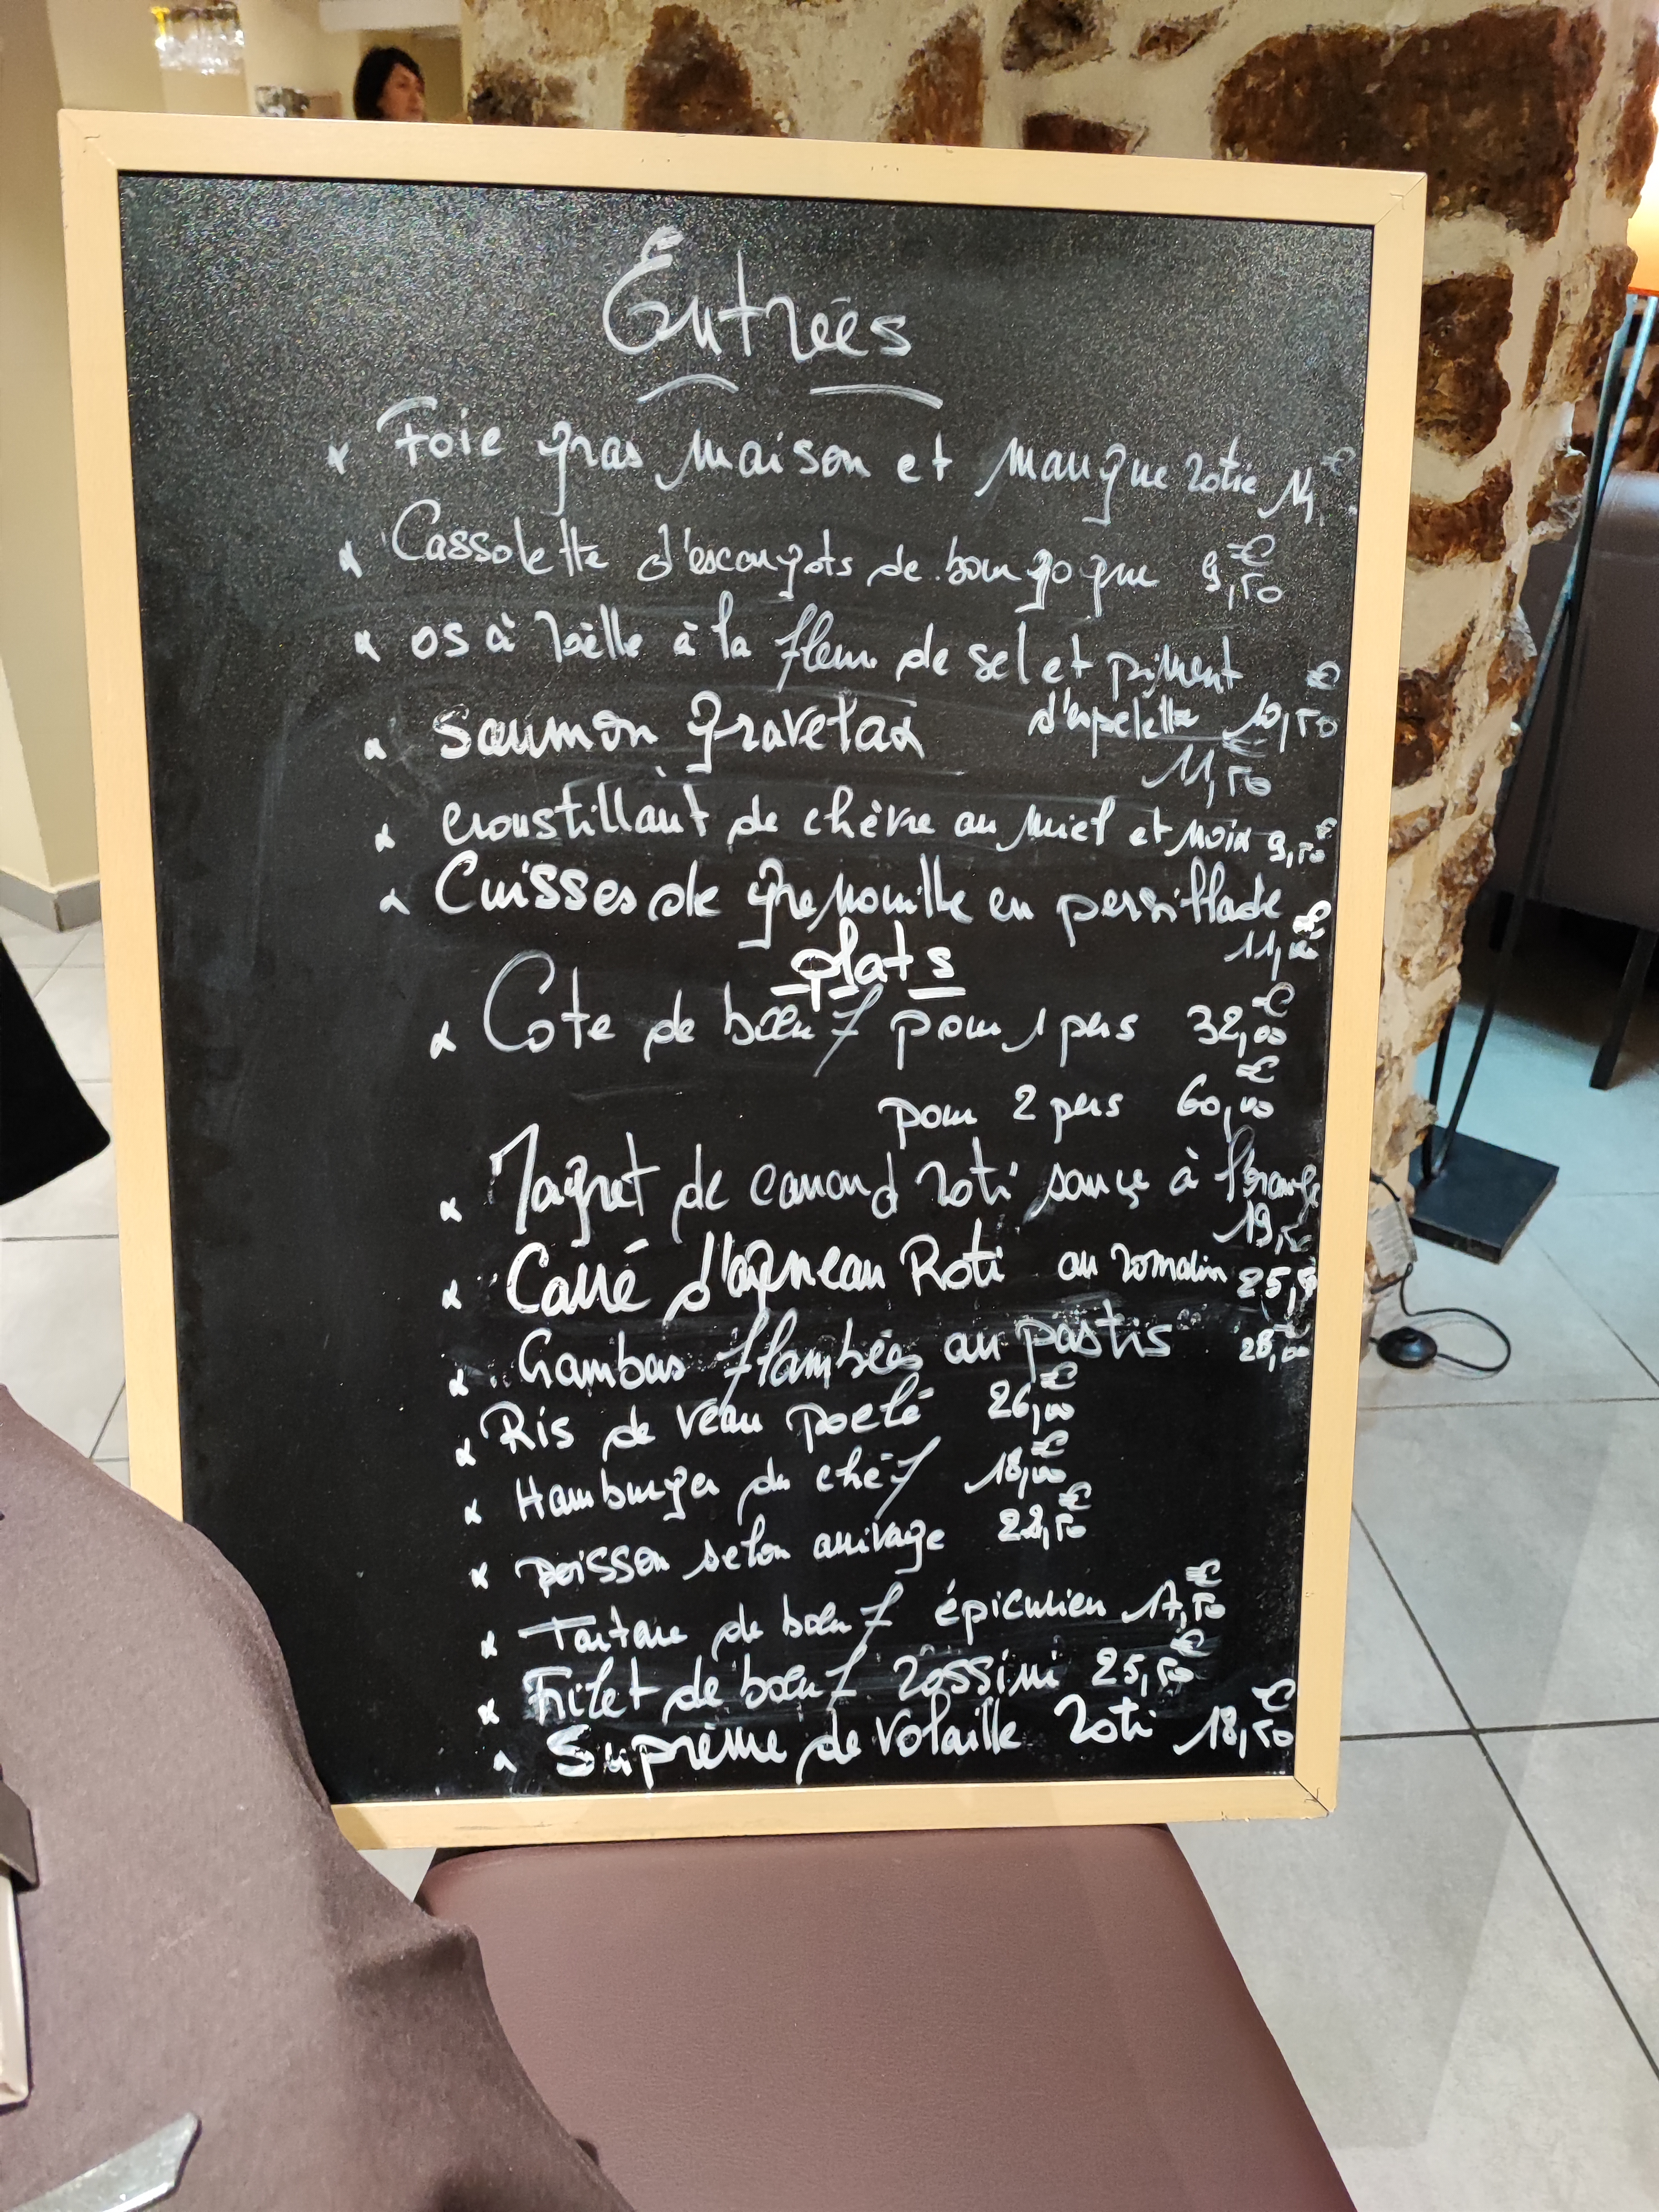 Entrées
Foie gras maison et mangue rotie 14 €
Cassolette d'escargots de bourgogne 9,50 €
os à Moëlle à la fleur de sel et piment
d'espelette 10,50 €
saumon gravelax 11,50 €
croustillant de chèvre au miel et noix 9,50 €
Cuisses de grenouille en persillade
11, €
plats
Cote de bœuf pour 1 pers 32,00 €
pour 2 pers 60,00 €
Magret de canard roti sauce à l'orange
19,50
Carré d'agneau Roti au romarin 25,
Gambas flambées au pastis 28,00
Ris de veau poelé 26,00 €
Hamburger du chef 18,00 €
poisson selon arrivage 22,50 €
Tartare de bœuf épicurien 17,50 €
Filet de bœuf rossini 25,50 €
Suprème de volaille roti 18,50 €